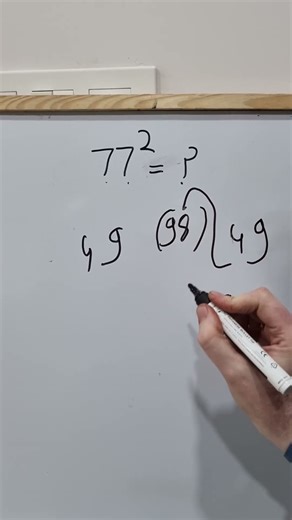 77² = ?
49 (98) 49